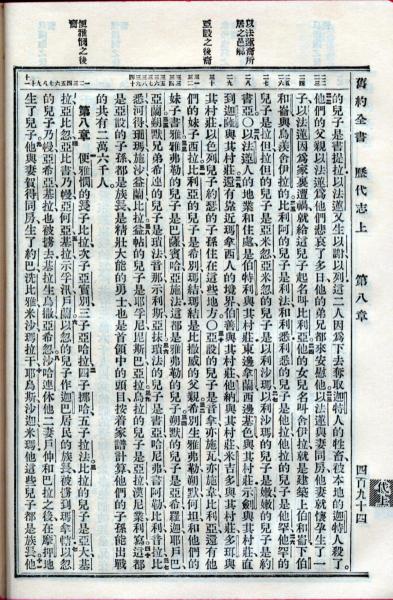 舊約全書 歷代志上 第八章 四百九十四
代上
的兒子是書提拉以法蓮又生以謝以列這二人因爲下去奪取迦特人的牲畜被本地的迦特人殺了
他們的父親以法蓮爲他們悲哀了多日他的弟兄都來安慰他以法蓮與妻同房他妻就懷孕生了一
子以法蓮因爲家裏遭禍就給這兒子起名叫比利亞他的女兒名叫舍伊拉就是建築上伯和崙下伯
和崙與烏羨舍伊拉的比利阿的兒子是利法和利悉利悉的兒子是他拉他拉的兒子是他罕他罕的
兒子是拉但拉但的兒子是亞米忽亞米忽的兒子是以利沙瑪以利沙瑪的兒子是嫩嫩的兒子是約
書亞〇以法蓮人的地業和住處是伯特利與其村莊東邊拿蘭西邊基色與其村莊示劍與其村莊直
到迦薩與其村莊還有靠近瑪拿西人的境界伯善與其村莊他納與其村莊米吉多與其村莊多珥與
其村莊以色列兒子約瑟的子孫住在這些地方〇亞設的兒子是音拿亦施瓦亦施韋比利亞還有他
們的妹子西拉比利亞的兒子是希別瑪結瑪結是比撒威的父親希別生雅弗勒朔默何坦和他們的
妹子書雅雅弗勒的兒子是巴薩賓哈亞施法這都是雅弗勒的兒子朔默的兒子是亞希羅迦耶戶巴
亞蘭朔默兄弟希連的兒子是瑣法音那示利斯亞抹瑣法的兒子是書亞哈尼弗書阿勒比利音拉比
悉河得珊瑪施沙益蘭比拉益帖的兒子是耶孚尼毘斯巴亞拉烏拉的兒子是亞拉漢尼業利寫這都
是亞設的子孫都是族長是精壯大能的勇士也是首領中的頭目按着家譜計算他們的子孫能出戰
的共有二萬六千人
第八章 便雅憫的長子比拉次子亞實別三子亞哈拉四子挪哈五子拉法比拉的兒子是亞大基
拉亞比忽亞比書乃幔亞何亞基拉示孚汛戶蘭以忽的兒子作迦巴居民的族長被擄到瑪拿轄以忽
的兒子乃幔亞希亞基拉也被擄去基拉生烏撒亞希忽沙哈連休他二妻戶伸和巴拉之後在摩押地
生了兒子他與妻賀得同房生了約巴洗比雅米沙瑪拉干耶烏斯沙迦米瑪他這些兒子都是族長他
以法蓮裔所
居之邑
亞設之後裔
便雅憫之後
裔